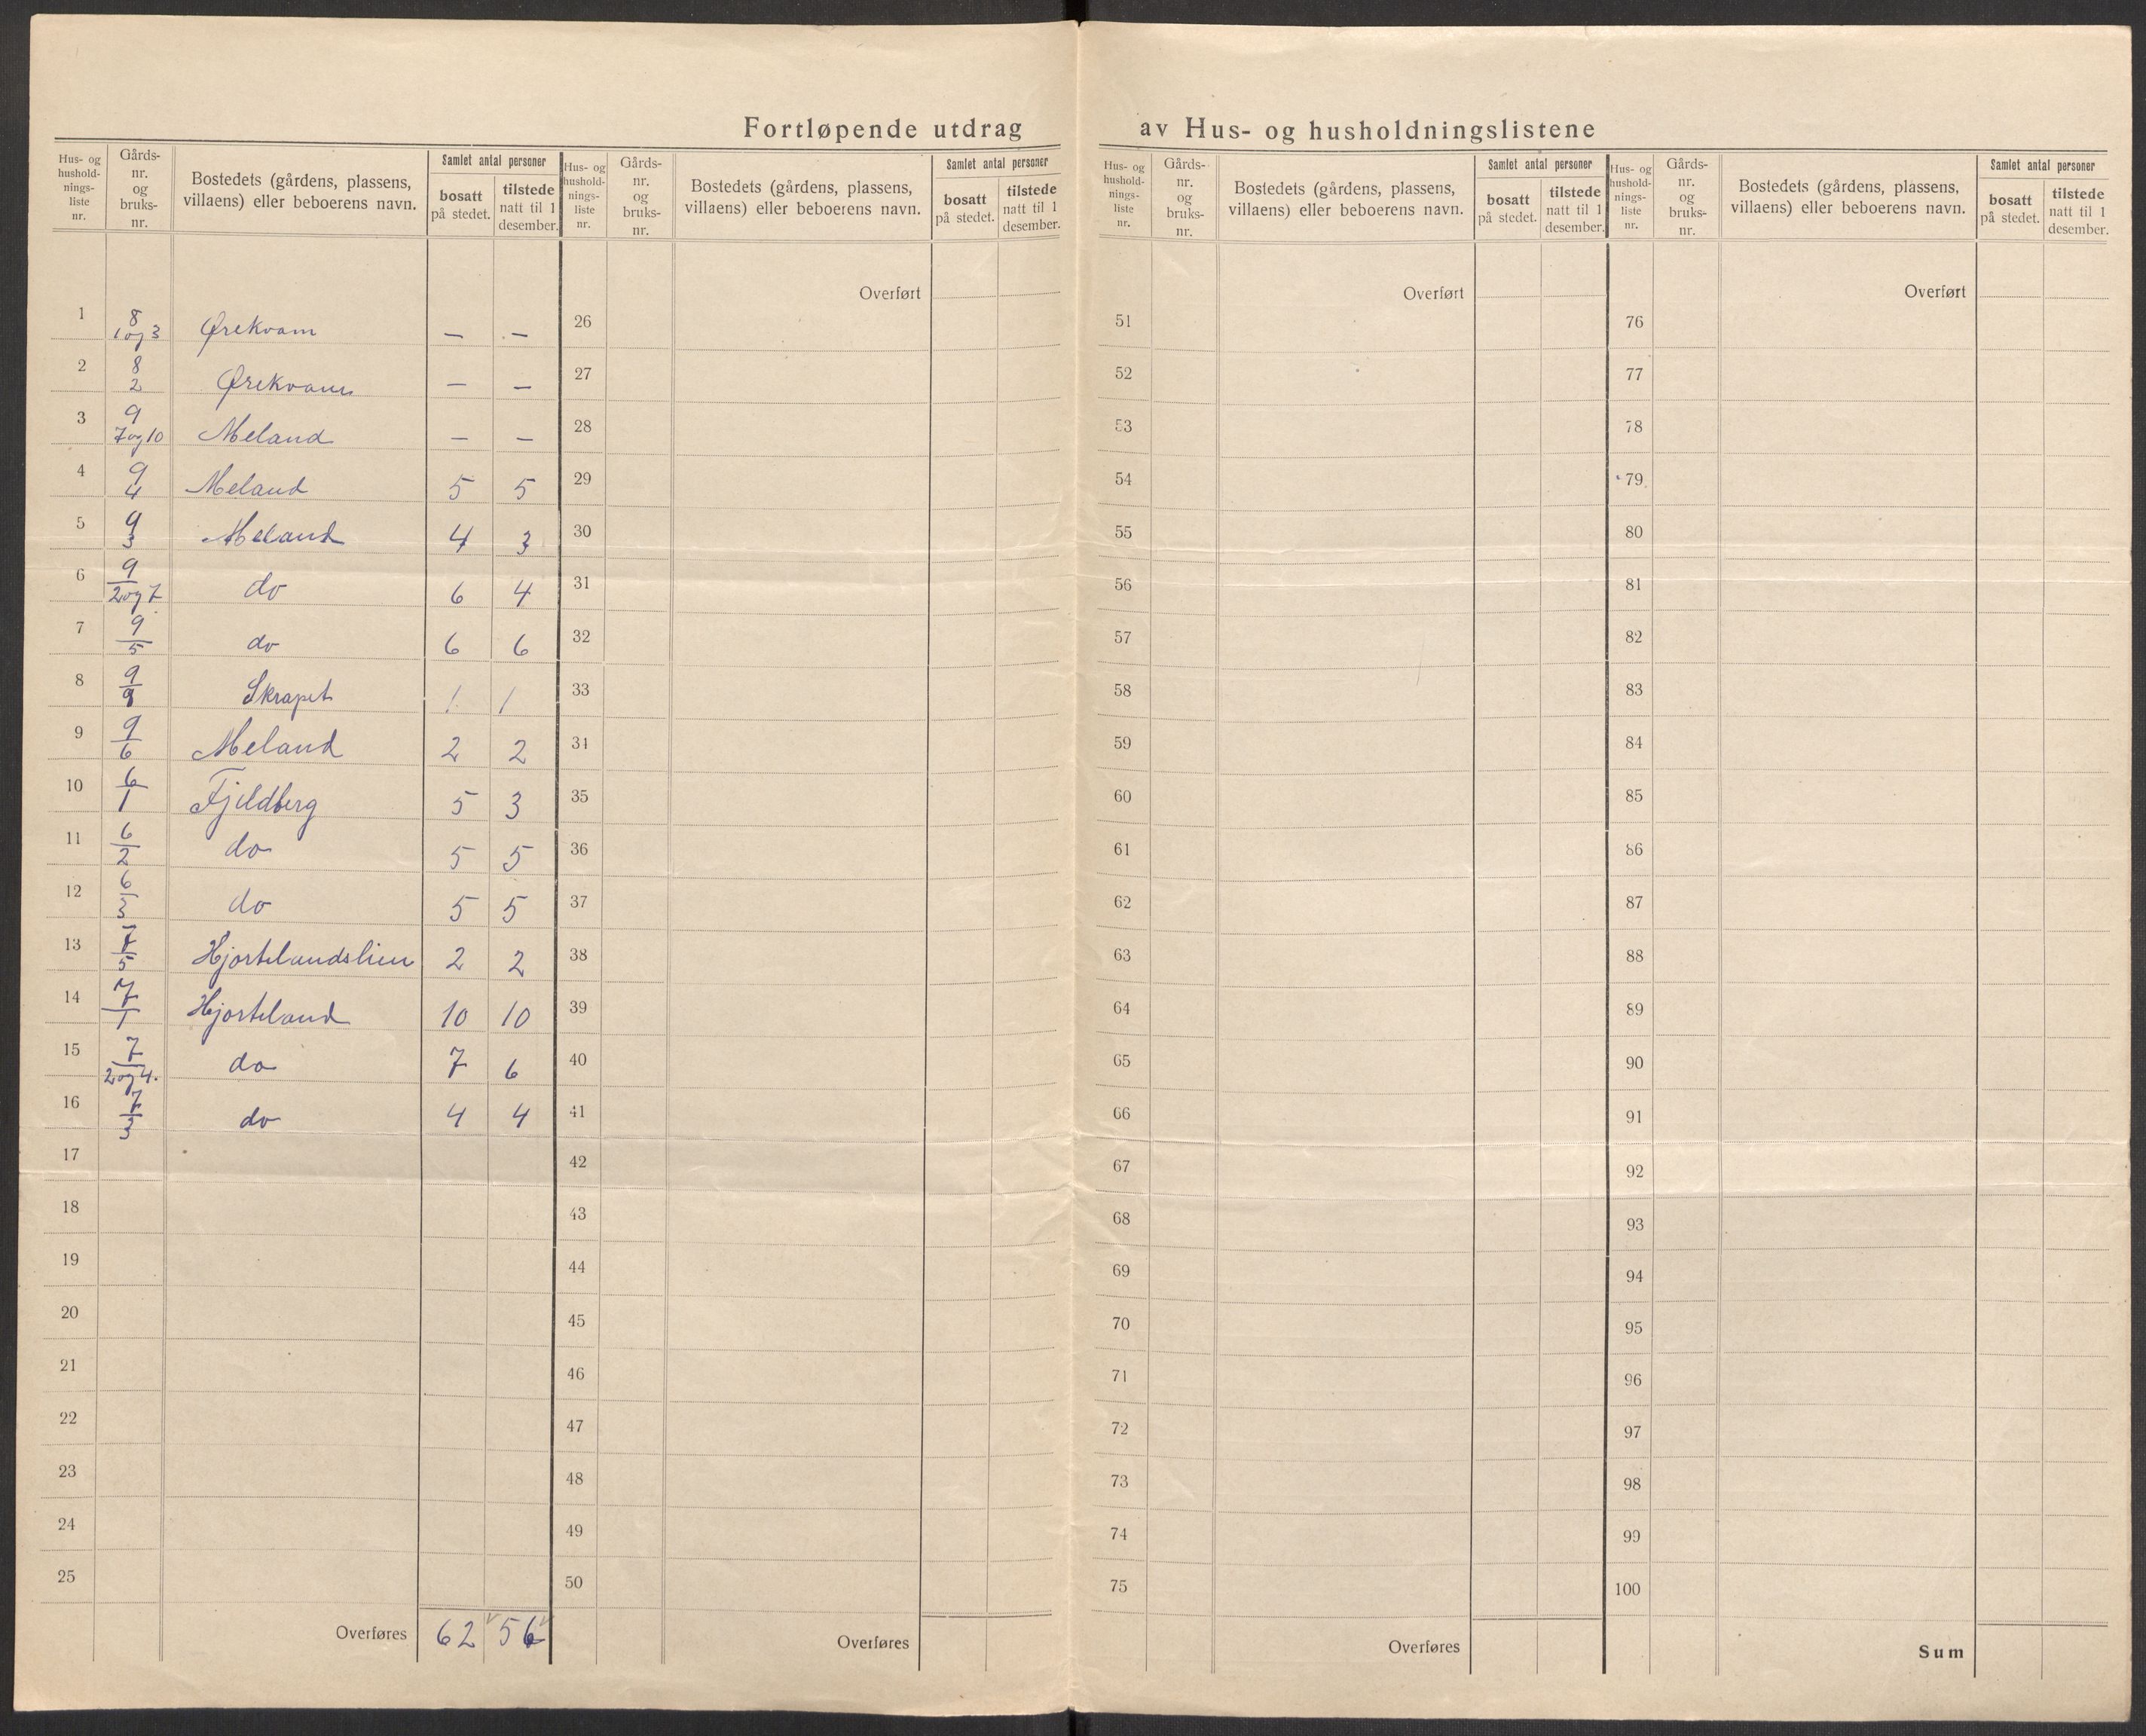 Fortløpende utdrag av Hus- og husholdningslistene
Hus- og hushold-nings-liste nr. | Gårds-nr. og bruks-nr. | Bostedets (gårdens, plassens, villaens) eller beboerens navn. | Samlet antal personer | bosatt på stedet. | tilstede natt til 1 desember.
1 | 8 / 1 og 3 | Ørekvam | — | —
2 | 8 / 2 | Ørekvam | — | —
3 | 9 / 7 og 10 | Meland | — | —
4 | 9 / 4 | Meland | 5 | 5
5 | 9 / 3 | Meland | 4 | 3
6 | 9 / 2 og 7 | do | 6 | 4
7 | 9 / 5 | do | 6 | 6
8 | 9 / | Skrapet | 1 | 1
9 | 9 / 6 | Meland | 2 | 2
10 | 6 / 1 | Fjeldberg | 5 | 3
11 | 6 / 2 | do | 5 | 5
12 | 6 / 3 | do | 5 | 5
13 | 7 / 5 | Hjortelandslien | 2 | 2
14 | 7 / 1 | Hjorteland | 10 | 10
15 | 7 / 2 og 4. | do | 7 | 6
16 | 7 / 3 | do | 4 | 4
17
18
19
20
21
22
23
24
25
Overføres | 62 | 56
Hus- og hushold-nings-liste nr. | Gårds-nr. og bruks-nr. | Bostedets (gårdens, plassens, villaens) eller beboerens navn. | Samlet antal personer | bosatt på stedet. | tilstede natt til 1 desember.
Overført
26
27
28
29
30
31
32
33
34
35
36
37
38
39
40
41
42
43
44
45
46
47
48
49
50
Overføres
Hus- og hushold-nings-liste nr. | Gårds-nr. og bruks-nr. | Bostedets (gårdens, plassens, villaens) eller beboerens navn. | Samlet antal personer | bosatt på stedet. | tilstede natt til 1 desember.
Overført
51
52
53
54
55
56
57
58
59
60
61
62
63
64
65
66
67
68
69
70
71
72
73
74
75
Overføres
Hus- og hushold-nings-liste nr. | Gårds-nr. og bruks-nr. | Bostedets (gårdens, plassens, villaens) eller beboerens navn. | Samlet antal personer | bosatt på stedet. | tilstede natt til 1 desember.
Overført
76
77
78
79
80
81
82
83
84
85
86
87
88
89
90
91
92
93
94
95
96
97
98
99
100
Sum